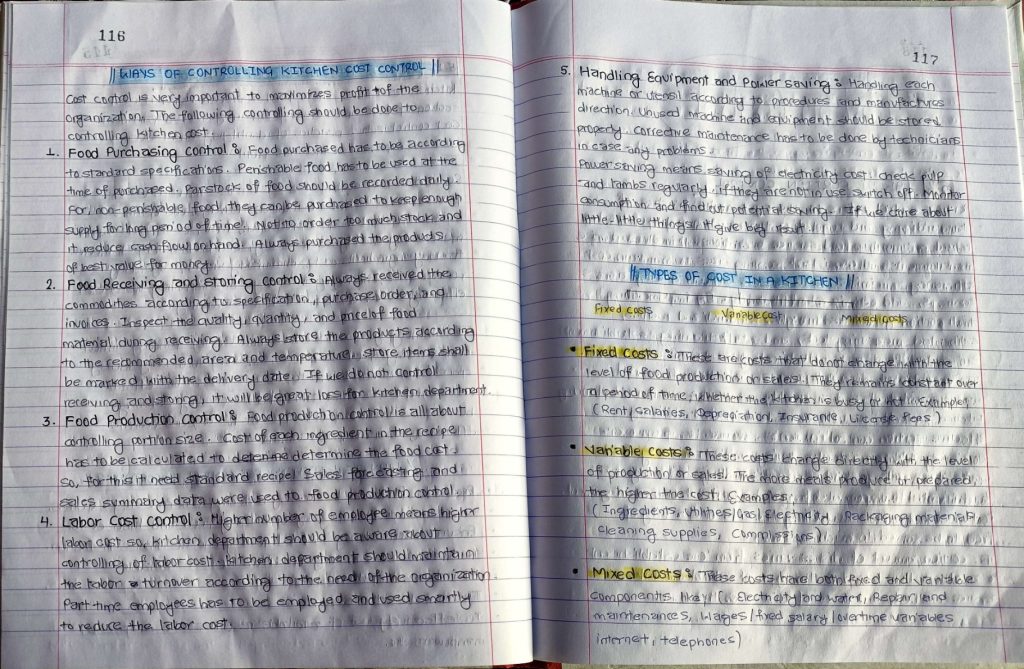 116
|| WAYS OF CONTROLLING KITCHEN COST CONTROL ||
Cost control is very important to maximizes profit of the
organization. The following controlling should be done to
controlling kitchen cost.
1. Food Purchasing control : Food purchased has to be according
to standard specifications. Perishable food has to be used at the
time of purchased. Parstock of food should be recorded daily.
For, non-perishable, food, they can be purchased to keep enough
supply for long period of time. Not to order too much stock and
it reduce cash flow on hand. Always purchased the products
of best value for money.
2. Food Receiving and storing control : Always received the
commodities according to specification, purchase order, and
invoices. Inspect the quality, quantity, and price of food
material during receiving. Always store the products according
to the recommended area and temperature, store items shall
be marked with the delivery date. If we do not control
receiving and storing, it will be great loss for kitchen department.
3. Food Production control : Food production control is all about
controlling portion size. Cost of each ingredient in the recipe
has to be calculated to determine the food cost.
So, for this it need standard recipe! Sales forecasting and
sales summary data were used to food production control.
4. Labor Cost Control : Hight number of employee means higher
labor cost so, kitchen department should be aware about
controlling of labor cost. kitchen department should maintain
the labor turnover according to the need of the organization.
Part time employees has to be employed and used smartly
to reduce the labor cost.
117
5. Handling Equipment and Power saving : Handling each
machine or utensil according to procedures and manufactures
direction. Unused machine and equipment should be stored
properly. corrective maintenance has to be done by technicians
in case any problems.
Power saving means saving of electricity cost, check pulp
and lambs regularly. if they are not in use switch off. Monitor
consumption and find out potential saving. If we care about
little-little things, it give big
|| TYPES OF COST IN A KITCHEN ||
Fixed costs Variable cost Mixed costs
• Fixed costs : These are costs that do not change with the
level of food production or sales. They remains constant over
a period of time, whether the kitchen is busy or not. Example:
(Rent, Salaries, Depreciation, Insurance, License Fees)
• Variable costs : These costs change directly with the level
of production or sales. The more meals produce or prepared,
the higher the cost. Examples:
(Ingredients, Utilities/Gas/Electricity, Packaging materials,
cleaning supplies, Commissions)
• Mixed costs : These costs have both fixed and variable
components. like (, Electricity and water, Repair and
maintenances, Wages/fixed salary/overtime variables,
internet, telephones)